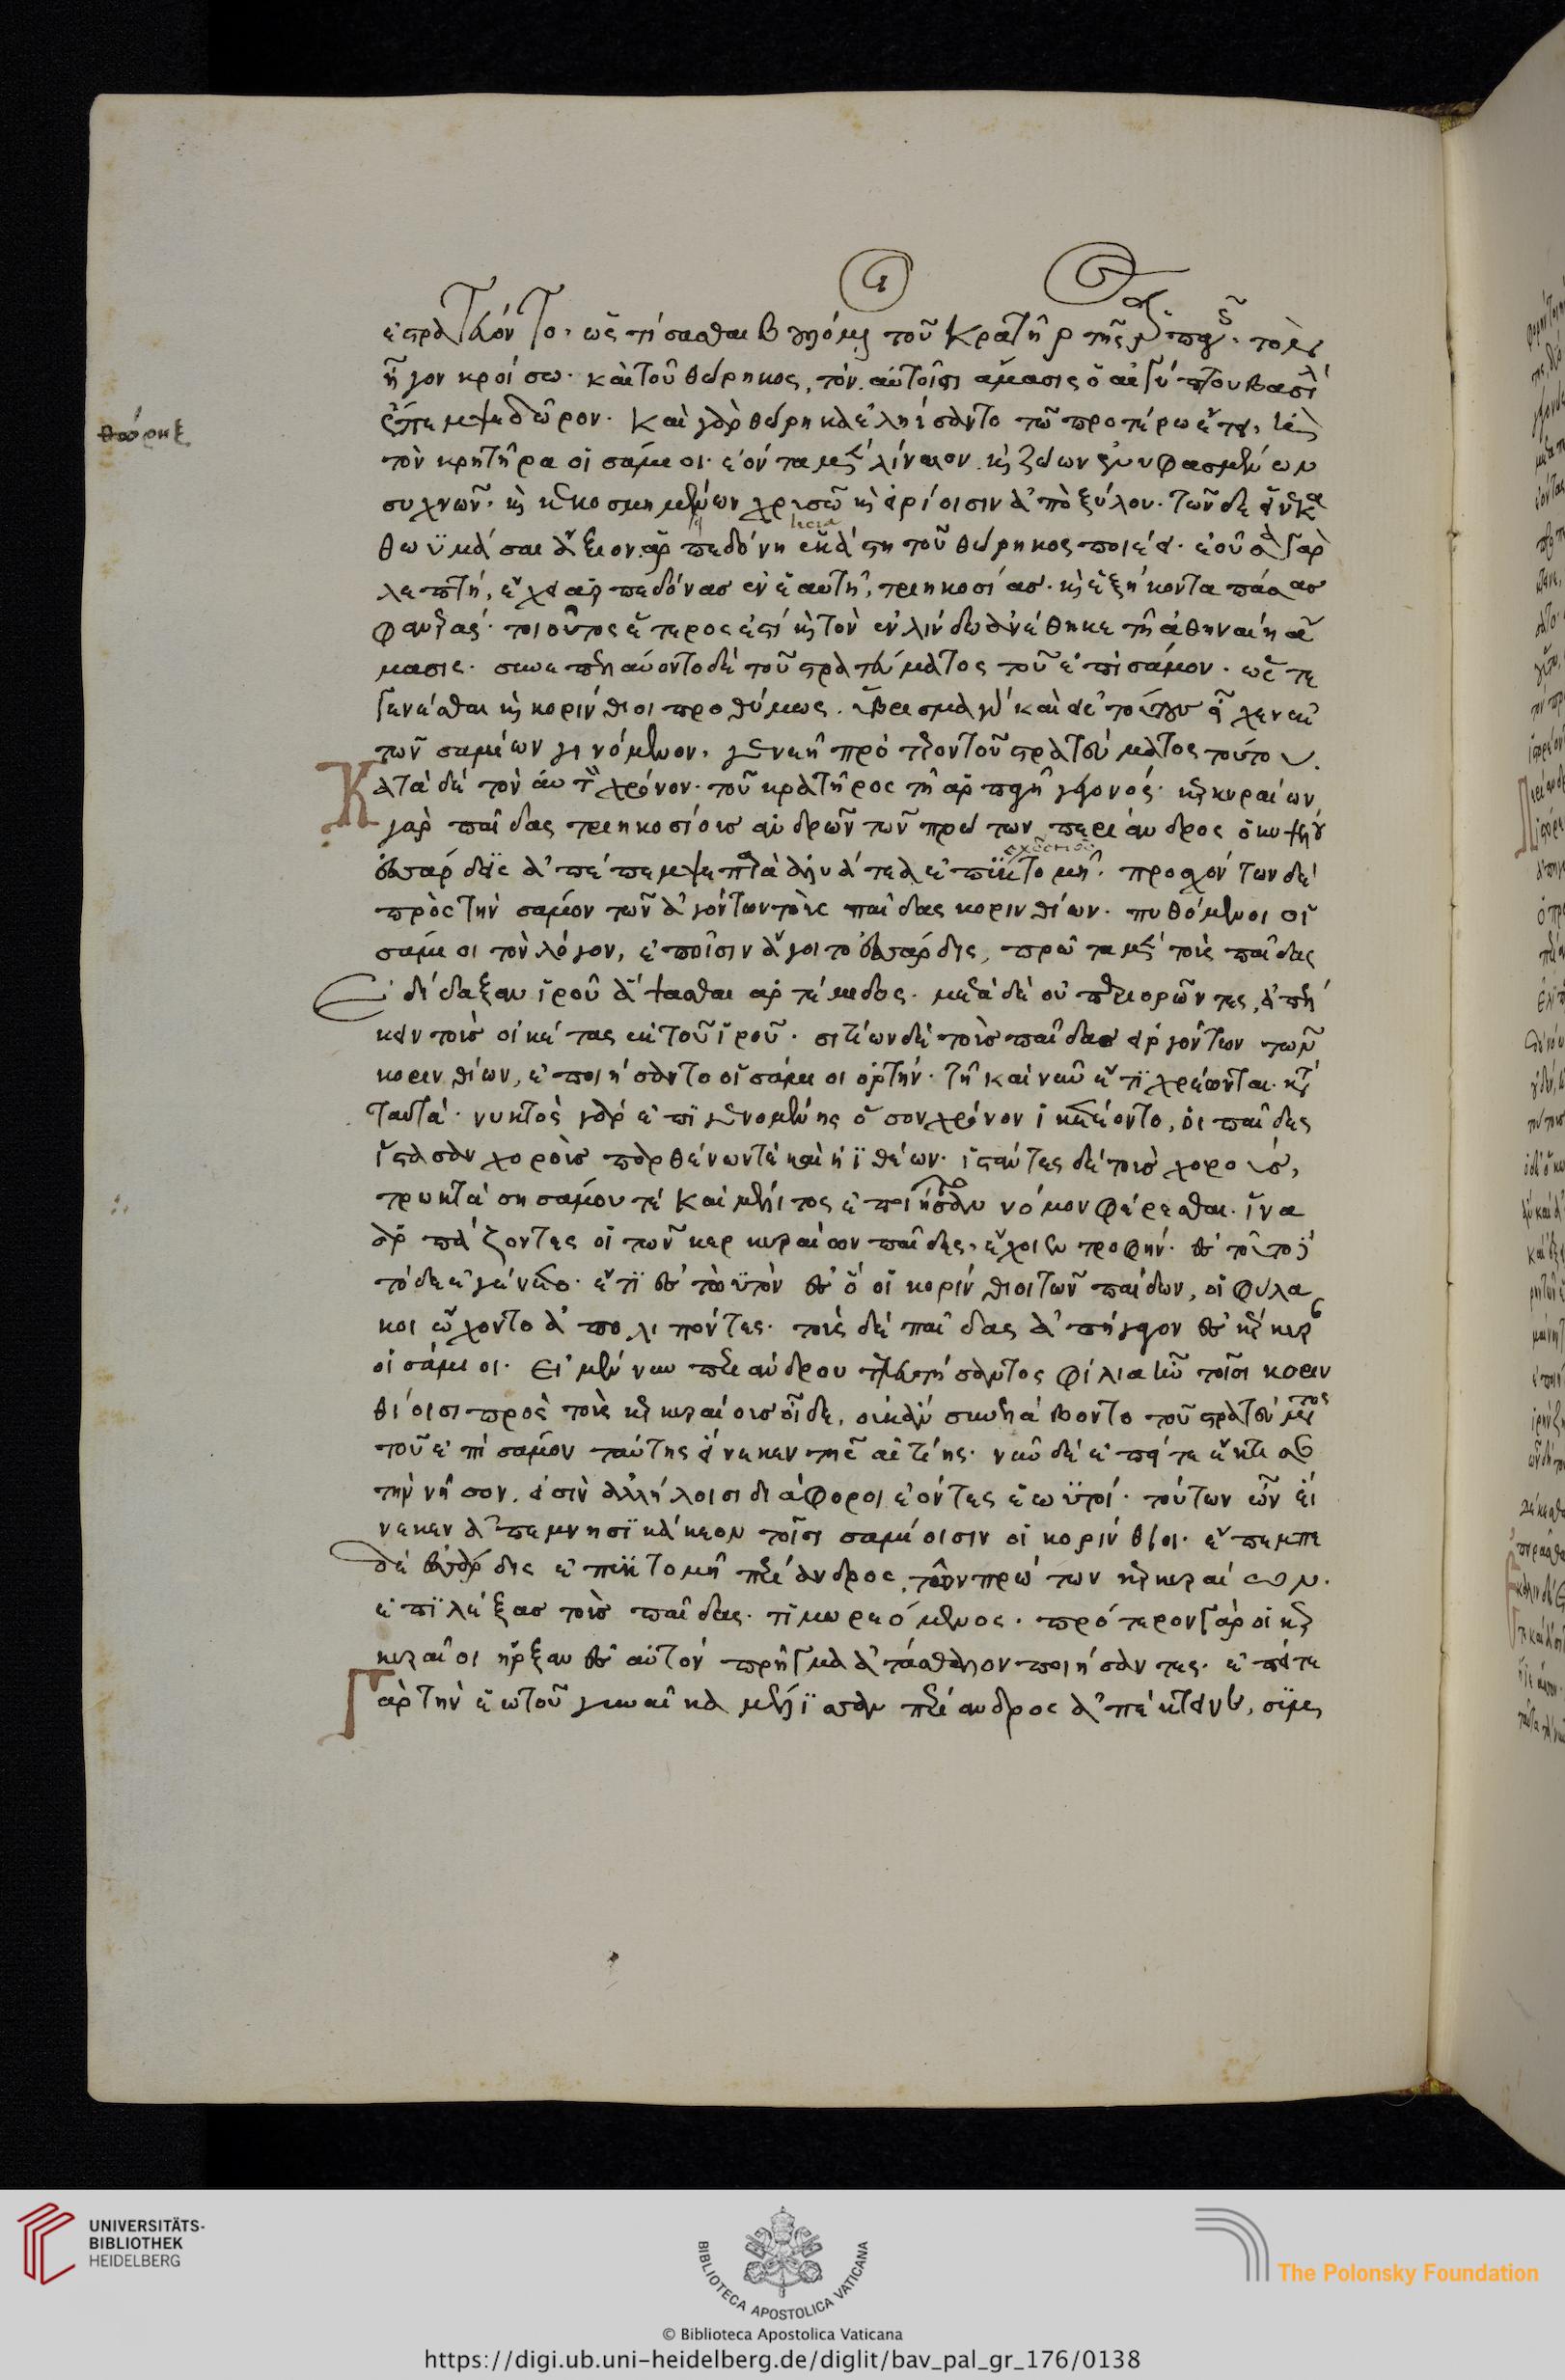 ἐστρατεύοντο. ὡς τίσασθαι βουλόμενοι τοῦ Κρατῆρος τῆς ἁρπαγῆς. τὸν
ἦγον κροίσω. καὶ τοῦ θώρηκος, τὸν αὐτοῖσι ἄμασις ὁ αἰγύπτου βασιλεὺς
ἔπεμψε δῶρον. Καὶ γὰρ θώρηκα ἐληίσαντο τῶ προτέρω ἔτει, ἢ
θώρηξ
τὸν κρητῆρα οἱ σάμιοι. ἐόντα μὲν λίνεον καὶ ζώων ἐνυφασμένων
συχνῶν. καὶ κεκοσμημένων χρυσῶ καὶ εἰρίοισιν ἀπὸ ξύλου. τῶν δὲ εἵνεκα
θωϋμάσαι ἄξιον ἁρπεδόνη ἑκάστη τοῦ θώρηκος ποιέει. ἐοῦσα γὰρ
λεπτή, ἔχει ἁρπεδόνας ἐν ἑαυτῆ, τριηκοσίας. καὶ ἑξήκοντα πάσας
φανεράς. τοιοῦτος ἕτερος ἐστί καὶ τὸν ἐν λίνδω ἀνέθηκε τῆ ἀθηναίη ἄ
μασις. συνεπελάβοντο δὲ τοῦ στρατεύματος τοῦ ἐπὶ σάμον. ὥστε
γενέσθαι καὶ κορίνθιοι προθύμως. ὕβρισμα γὰρ καὶ εἰς τούτου εἶχεν ἐκ
τῶν σαμίων γινόμενον. γενεῆ πρότερον τοῦ στρατεύματος τούτου.
Κατὰ δὲ τὸν αὐτὸν χρόνον. τοῦ κρατῆρος τῆ ἁρπαγῆ γεγονός. κερκυραίων
γὰρ παῖδας τριηκοσίους ἀνδρῶν τῶν πρώτων περίανδρος ὁ κυψέλου
ἐς σάρδϊς ἀπέπεμψε παρὰ ἀλυάττεα ἐπ' ἐκτομῆ. προσχόντων δὲ
πρὸς τὴν σάμον τῶν ἀγόντων τοὺς παῖδας κορινθίων. πυθόμενοι οἱ
σάμιοι τὸν λόγον, ἐπ' οἷσιν ἄγοιντο ἐς σάρδις, πρῶτα μὲν τοὺς παῖδας
Ἐδίδαξαν ἱροῦ ἅψασθαι ἀρτέμιδος. μετὰ δὲ οὐ περιορῶντες, ἀπέλ
κειν τοὺς οἰκέτας ἐκ τοῦ ἱροῦ. σιτίων δὲ τοὺς παῖδας εἰργόντων τῶν
κορινθίων, ἐποιήσαντο οἱ σάμιοι ὁρτήν. τῆ καὶ νῦν ἔτϊ χρέωνται κατὰ
ταυτά. νυκτὸς γὰρ ἐπϊγενομένης ὅσον χρόνον ἱκέτευοντο, οἱ παῖδες
ἵστασαν χοροὺς παρθένων τὲ καὶ ἠϊθέων. ἱστάντες δὲ τοὺς χοροὺς,
τρωκτὰ σησάμου τὲ Καὶ μέλιτος ἐποιήσαντο νόμον φέρεσθαι. ἵνα
ἁρπάζοντες οἱ τῶν κερκυραίων παῖδες, ἔχοιεν τροφήν. ἐς τοῦτο
τόδε ἐγένετο. ἔτϊ ἐς τοϋτὸν ἐς ὃ οἱ κορίνθιοι τῶν παίδων, οἱ φύλα
κοι ὤχοντο ἀπολιπόντες. τοὺς δὲ παῖδας ἀπήγαγον ἐς κέρκυραν
οἱ σάμιοι. Εἰ μὲν νυν περιάνδρου τελευτήσαντος φίλια ἦν τοῖσι κοριν
θίοισι πρὸς τοὺς κερκυραίους οἵδε, οὐκ ἂν συνελάβοντο τοῦ στρατεύματος
τοῦ ἐπὶ σάμον ταύτης εἵνεκεν τῆς αἰτίης. νῦν δὲ ἐπεί τε ἔκτισαν
τὴν νῆσον. εἰσὶν ἀλλήλοισι διάφοροι ἐόντες ἑωϋτοί. τούτων ὦν εἵ
νεκεν ἀπεμνησϊκάκεον τοῖσι σαμίοισιν οἱ κορίνθιοι. ἔπεμπε
δὲ ἐς σάρδις ἐπ' ἐκτομῆ περίανδρος, τῶν πρώτων κερκυραίων.
ἐπϊλέξας τοὺς παῖδας. τϊμωρεόμενος. πρότερον γὰρ οἱ κερ
κυραῖοι ἦρξαν ἐς αὐτὸν πρῆγμα ἀτάσθαλον ποιήσαντες. ἐπεί τε
Γὰρ τὴν ἑωτοῦ γυναῖκα μέλϊσσαν περίανδρος ἀπέκτεινε, συμ
UNIVERSITÄTS-
BIBLIOTHEK
HEIDELBERG
BIBLIOTECA APOSTOLICA VATICANA
The Polonsky Foundation
© Biblioteca Apostolica Vaticana
https://digi.ub.uni-heidelberg.de/diglit/bav_pal_gr_176/0138